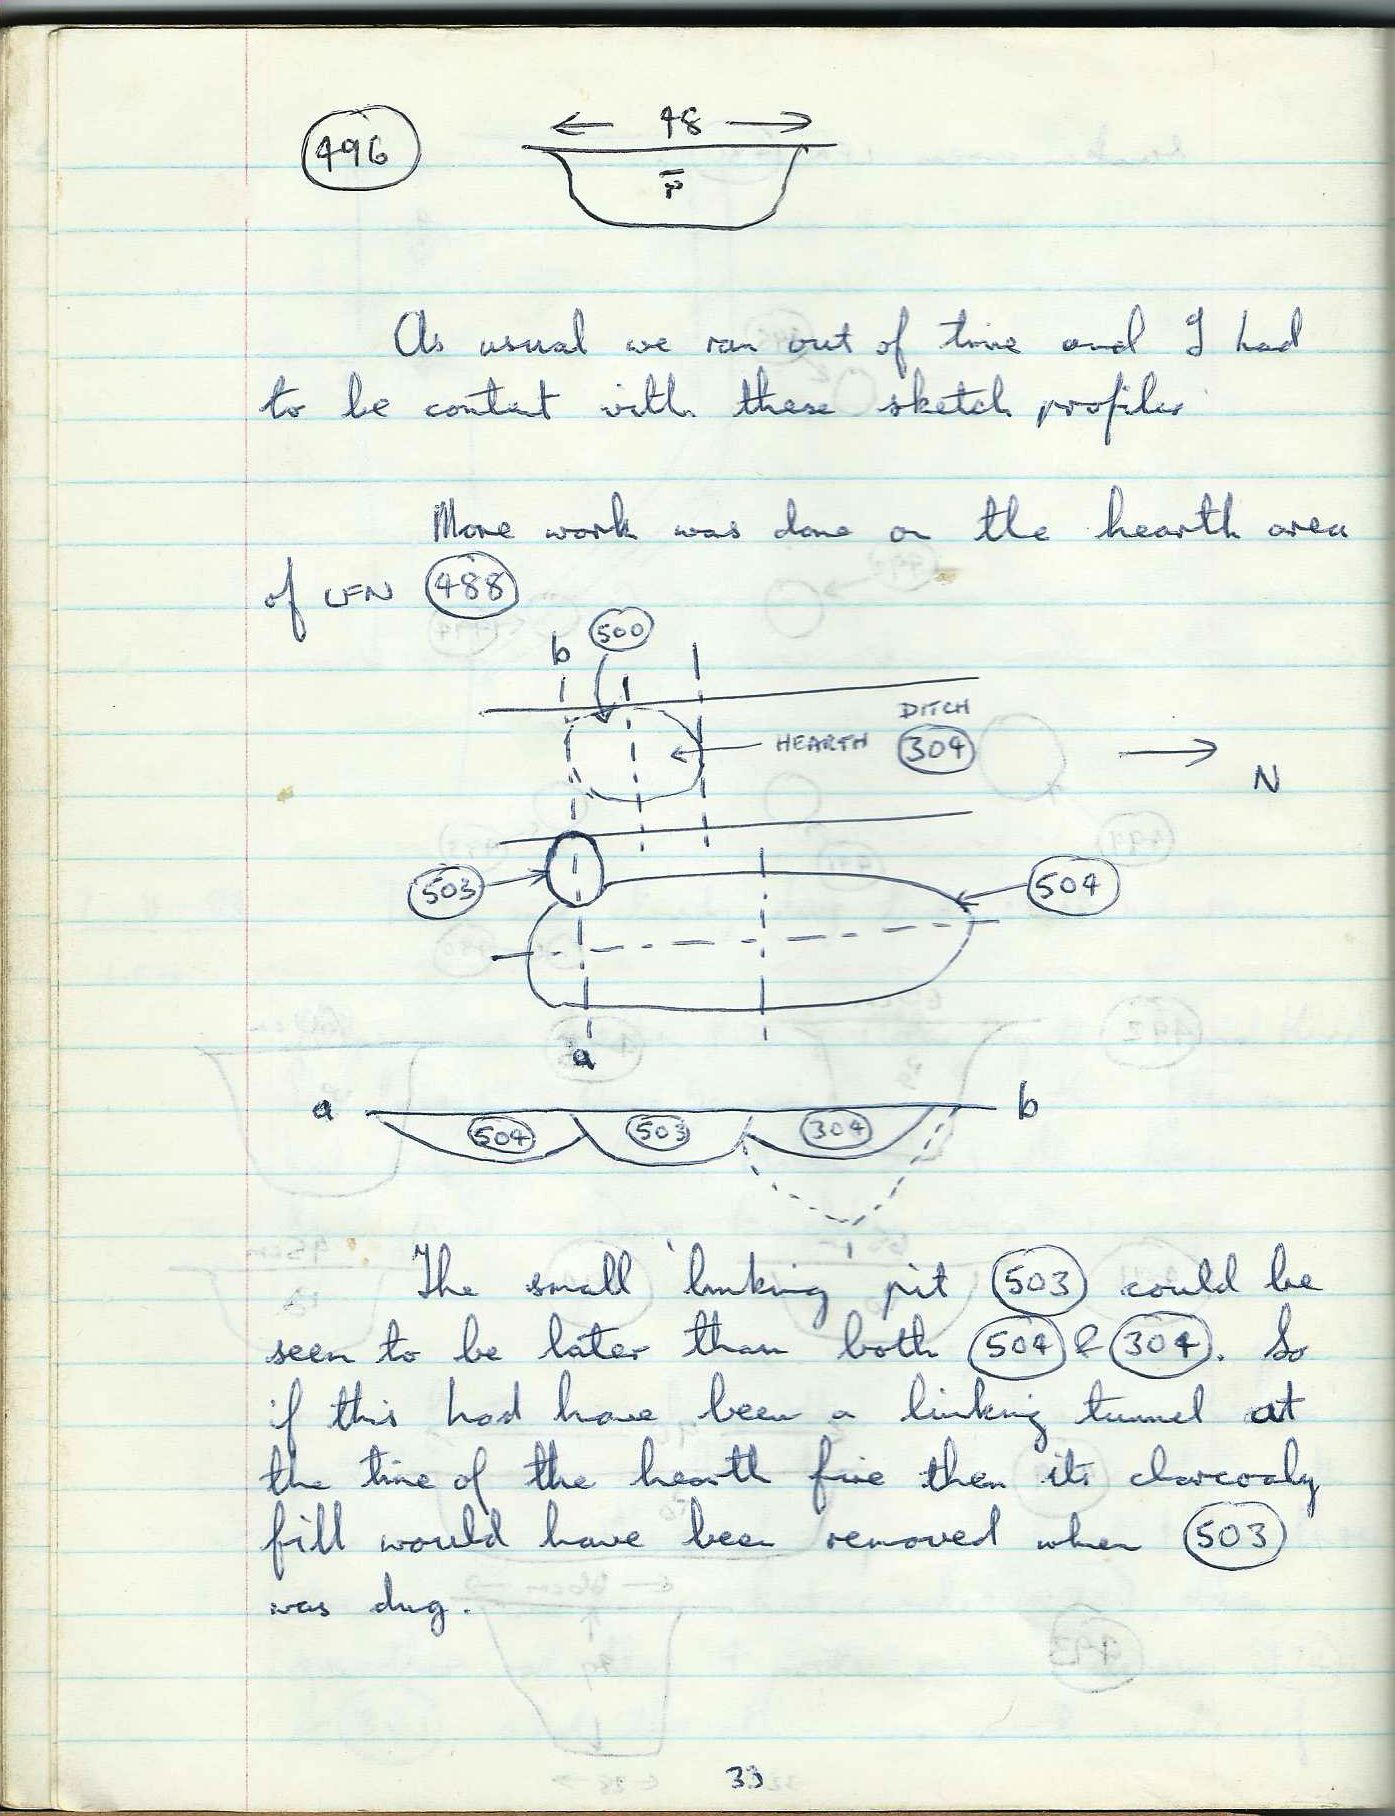 496
48
As usual we ran out of time and I had
to be content with these sketch profiles
More work was done on the hearth area
of UFN 488
500
b
DITCH
HEARTH 304
N
503
504
a
a b
504 503 304
The small 'linking pit 503 could be
seen to be later than both 504 & 304. So
if this had have been a linking tunnel at
the time of the hearth fire then its charcoaly
fill would have been removed when 503
was dug.
33